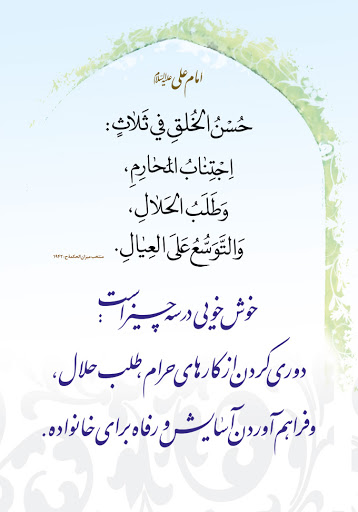 امام علی علیه‌السلام
حُسْنُ الْخُلقِ فِي ثَلاثٍ:
اِجْتِنابُ المَحارِمِ،
وَطَلَبُ الحَلالِ،
وَالتَّوَسُّعُ عَلَى العِيالِ.
منتخب میزان‌الحکمة ح: ۱۹۲۲
خوش خویی در سه چیز است:
دوری کردن از کارهای حرام، طلب حلال،
و فراهم آوردن آسایش و رفاه برای خانواده.